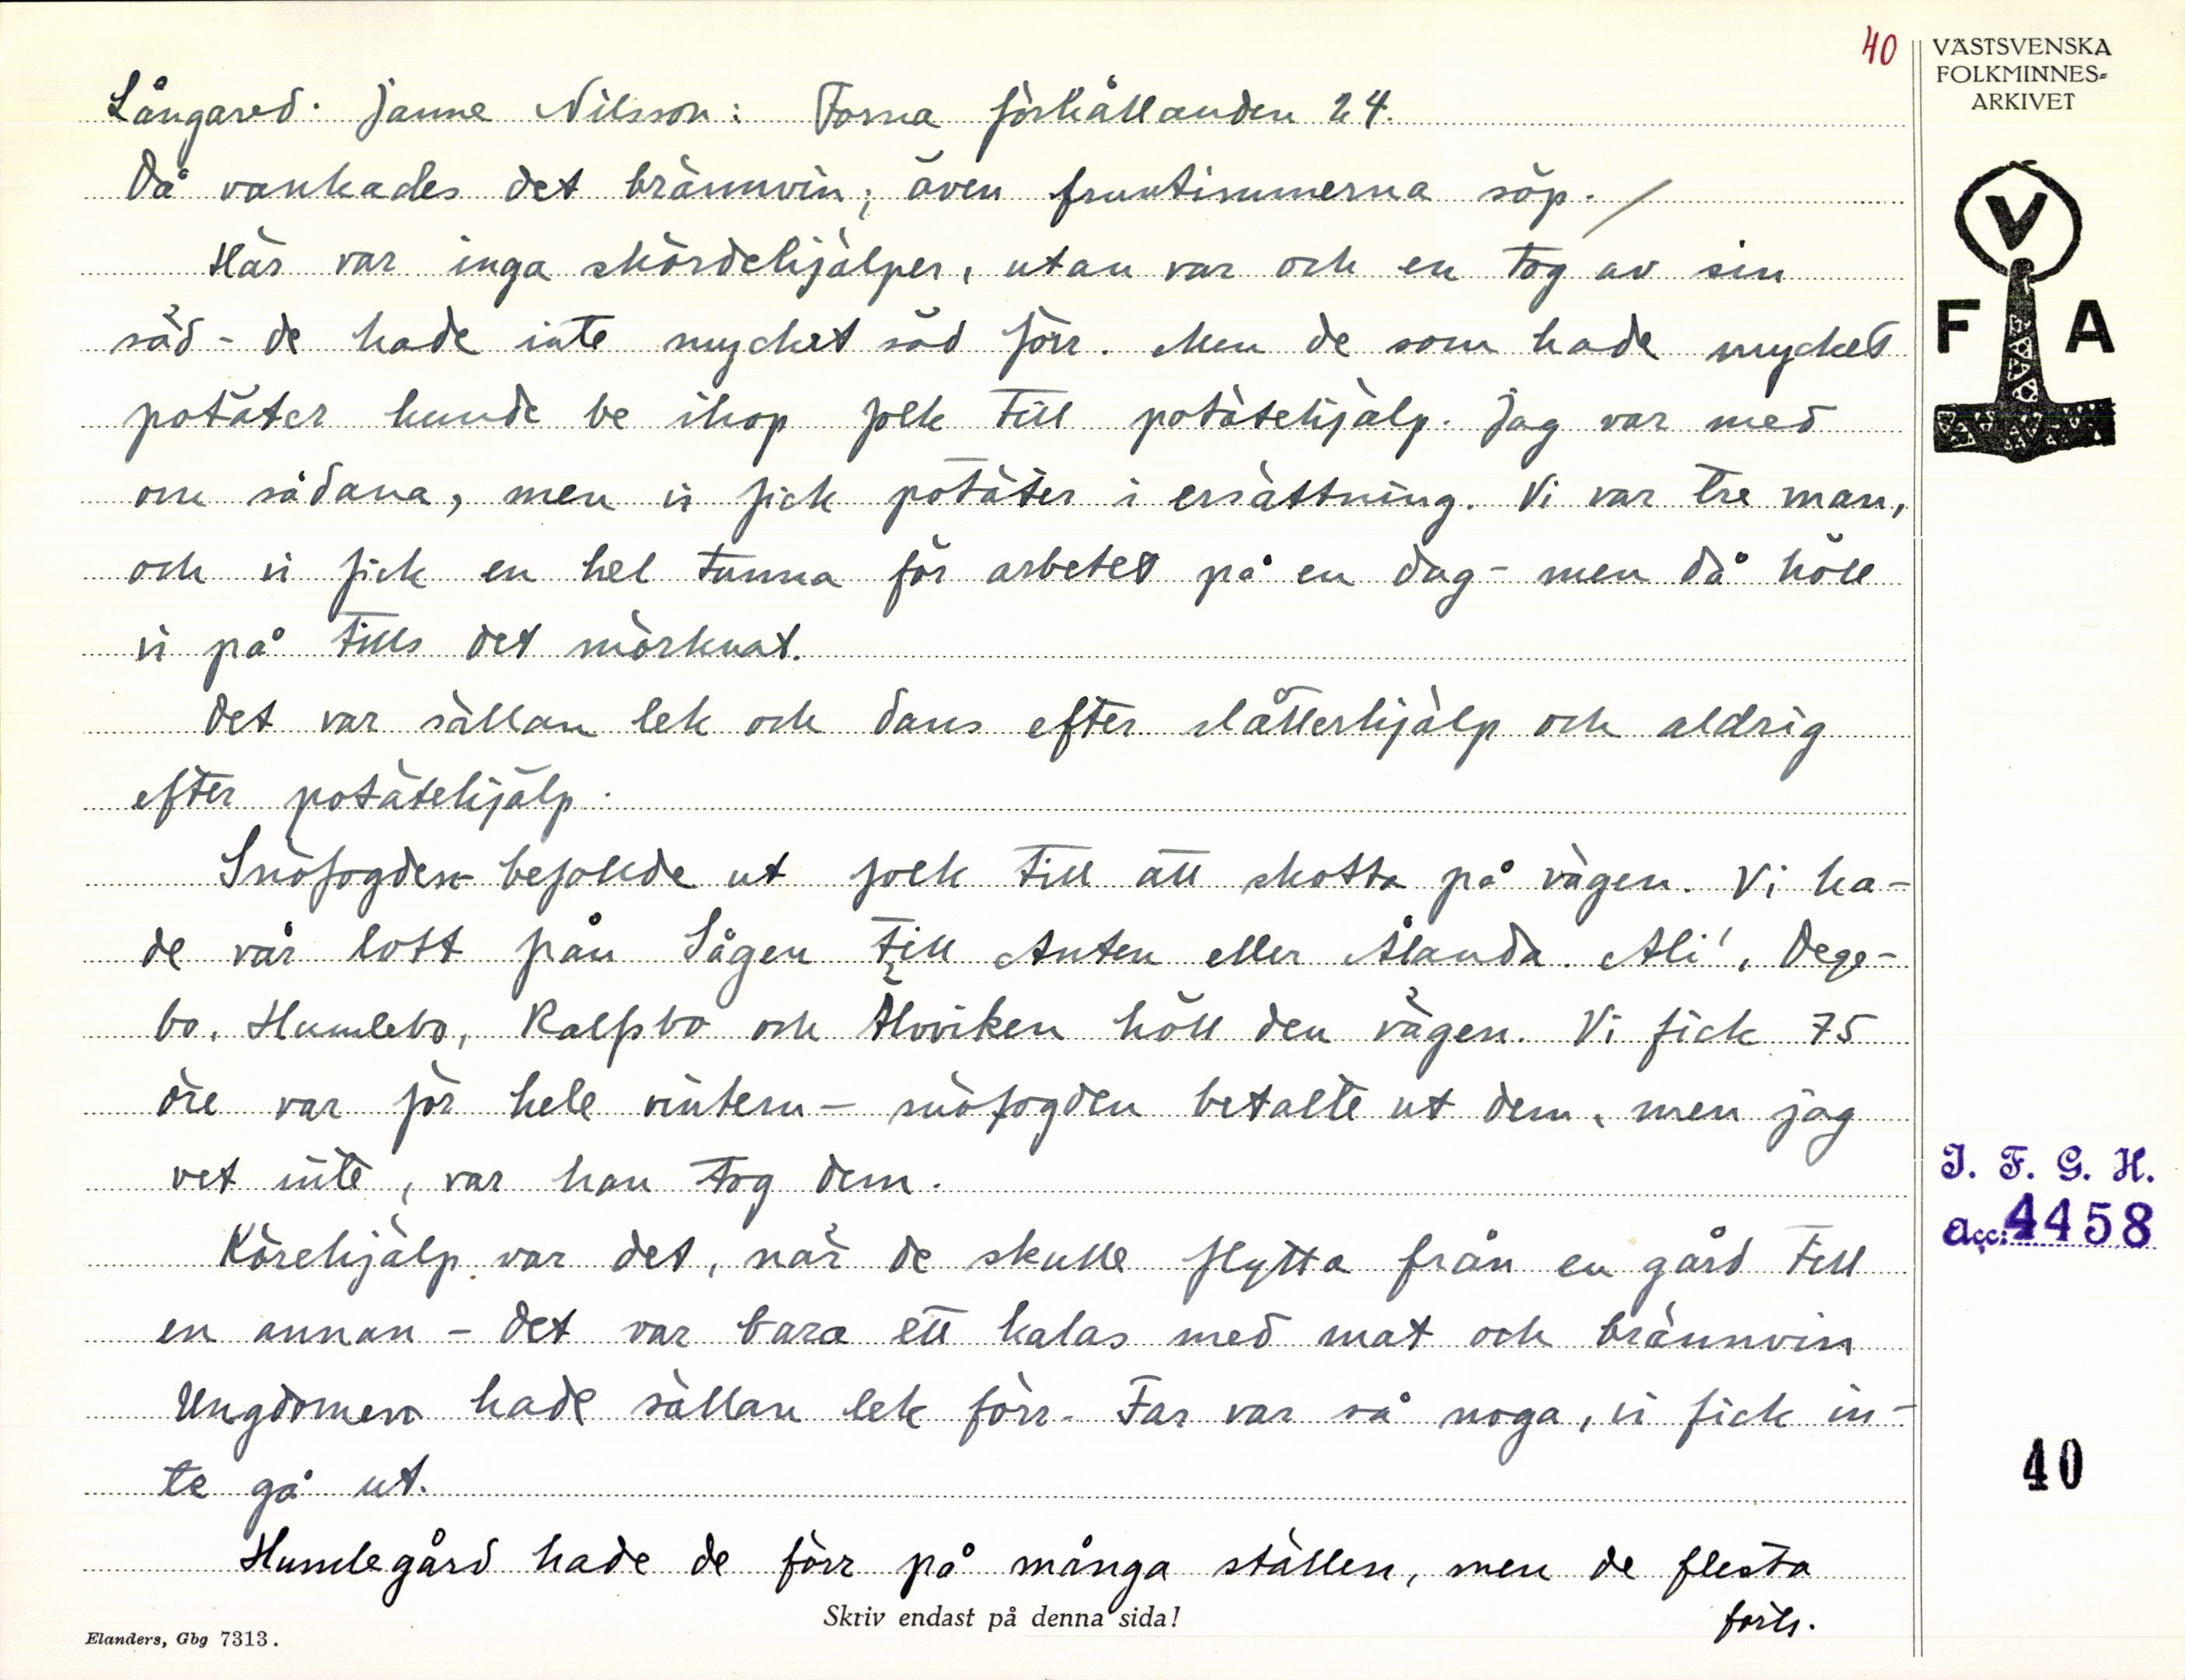 40
VÄSTSVENSKA
FOLKMINNES-
ARKIVET
Långared. Janne Nilsson: Forna förhållanden 24.
Då vankades det brännvin; även fruntimmerna söp. /
Här var inga skördehjälper, utan var och en tog av sin
säd - de hade inte mycket säd förr. Men de som hade mycket
potäter kunde be ihop folk till potätehjälp. Jag var med
om sådana, men vi fick potäter i ersättning. Vi var tre man,
och vi fick en hel tunna för arbetet på en dag - men då höll
vi på tills det mörknat.
Det var sällan lek och dans efter slåtterhjälp och aldrig
efter potätehjälp.
Snöfogden befallde ut folk till att skotta på vägen. Vi ha-
de vår lott från Sågen till Anten eller Ålanda. Ali', Dege-
bo, Humlebo, Kalfsbo och Älvviken höll den vägen. Vi fick 75
öre var för hele vintern - snöfogden betalte ut dem, men jag
vet inte, var han tog dem.
Körehjälp var det, när de skulle flytta från en gård till
en annan - det var bara ett kalas med mat och brännvin
Ungdomen hade sällan lek förr. Far var så noga, vi fick in-
te gå ut.
Humlegård hade de förr på många ställen, men de flesta
forts.
Skriv endast på denna sida!
Elanders, Gbg 7313.
V
F A
I. F. G. H.
Acc: 4458
40